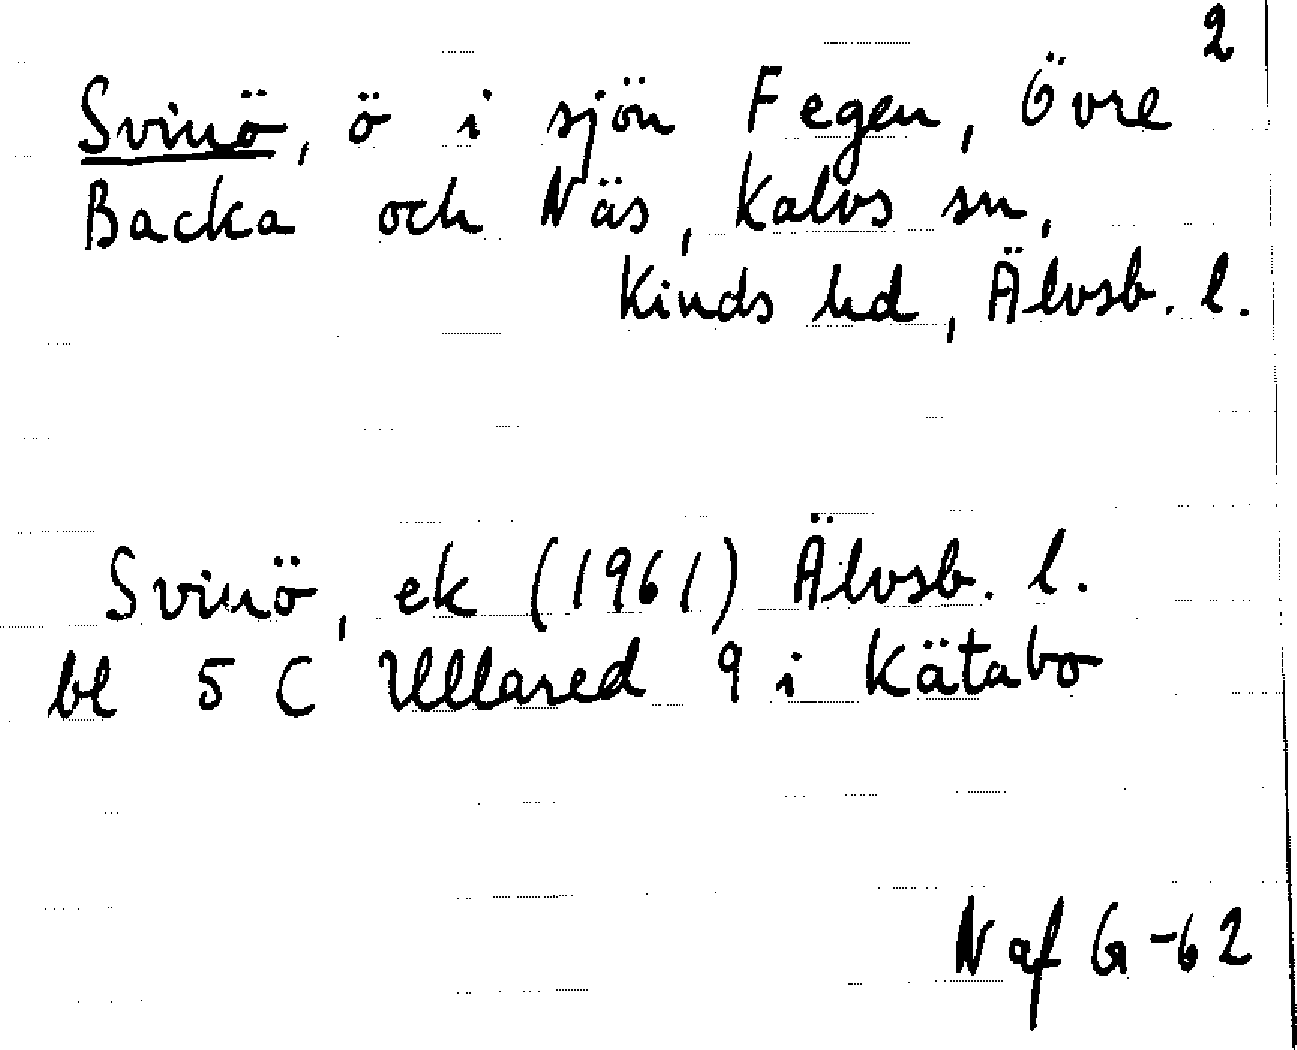 2
Svinö, ö i sjön Fegen, Övre
Backa och Näs, Kalvs sn,
Kinds hd, Älvsb. l.
Svinö, ek (1961) Älvsb. l.
bl 5 C Ullared 9 i Kätabo
N af G -62